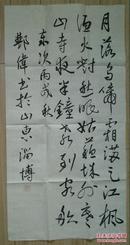 月落乌啼霜满天江枫
渔火对愁眠姑苏城外寒
山寺夜半钟声到客船
岁次丙戌秋
书于山东淄博